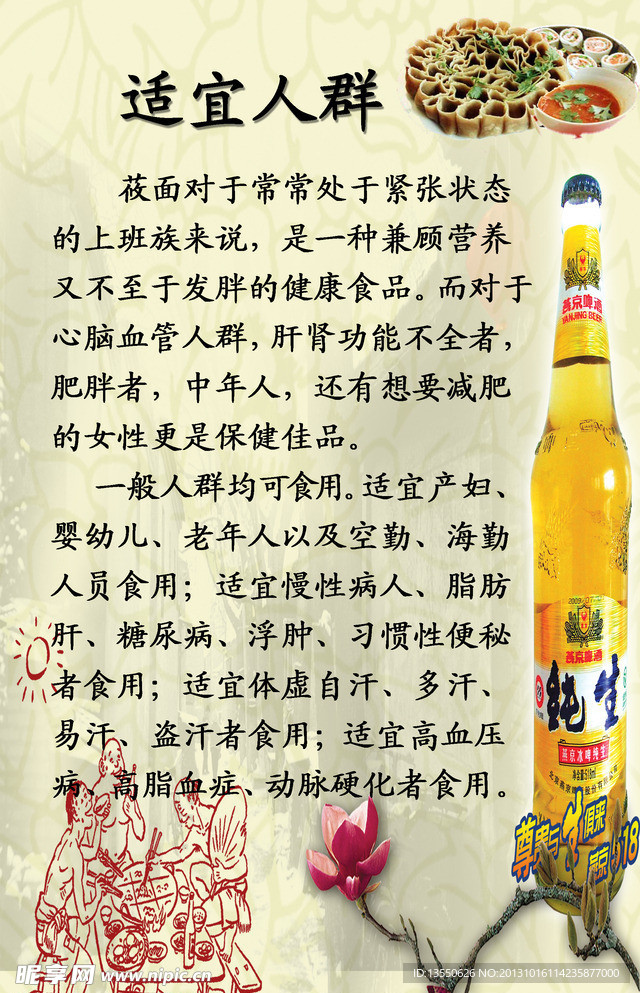 适宜人群
莜面对于常常处于紧张状态
的上班族来说，是一种兼顾营养
又不至于发胖的健康食品。而对于
心脑血管人群，肝肾功能不全者，
肥胖者，中年人，还有想要减肥
的女性更是保健佳品。
一般人群均可食用。适宜产妇、
婴幼儿、老年人以及空勤、海勤
人员食用；适宜慢性病人、脂肪
肝、糖尿病、浮肿、习惯性便秘
者食用；适宜体虚自汗、多汗、
易汗、盗汗者食用；适宜高血压
病、高脂血症、动脉硬化者食用。
燕京啤酒
YANJING BEER
燕京啤酒
纯生
燕京冰啤纯生
净含量:518ml
尊贵与生俱来
昵享网 www.nipic.cn
ID:13550626 NO:20131016114235877000